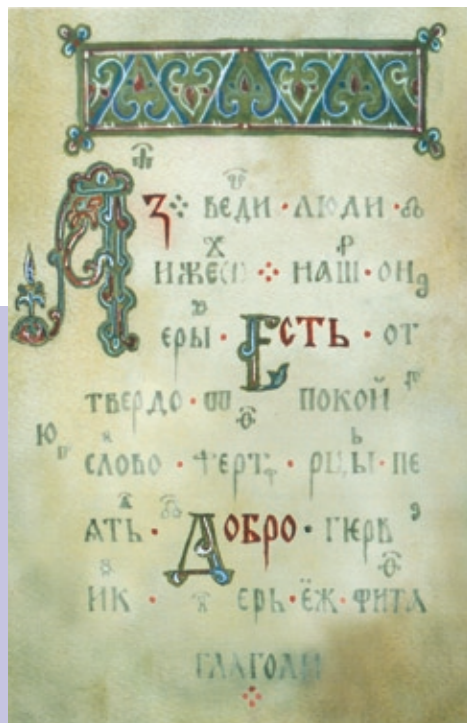 Аз ⁘ веди · люди · ѧ
иже ⁘ наш · он
еры · Есть · от
твердо · ѿ покой
слово · ферт · рцы · пе
ять · Добро · герв
ик · ерь · ёж · фита
глаголи